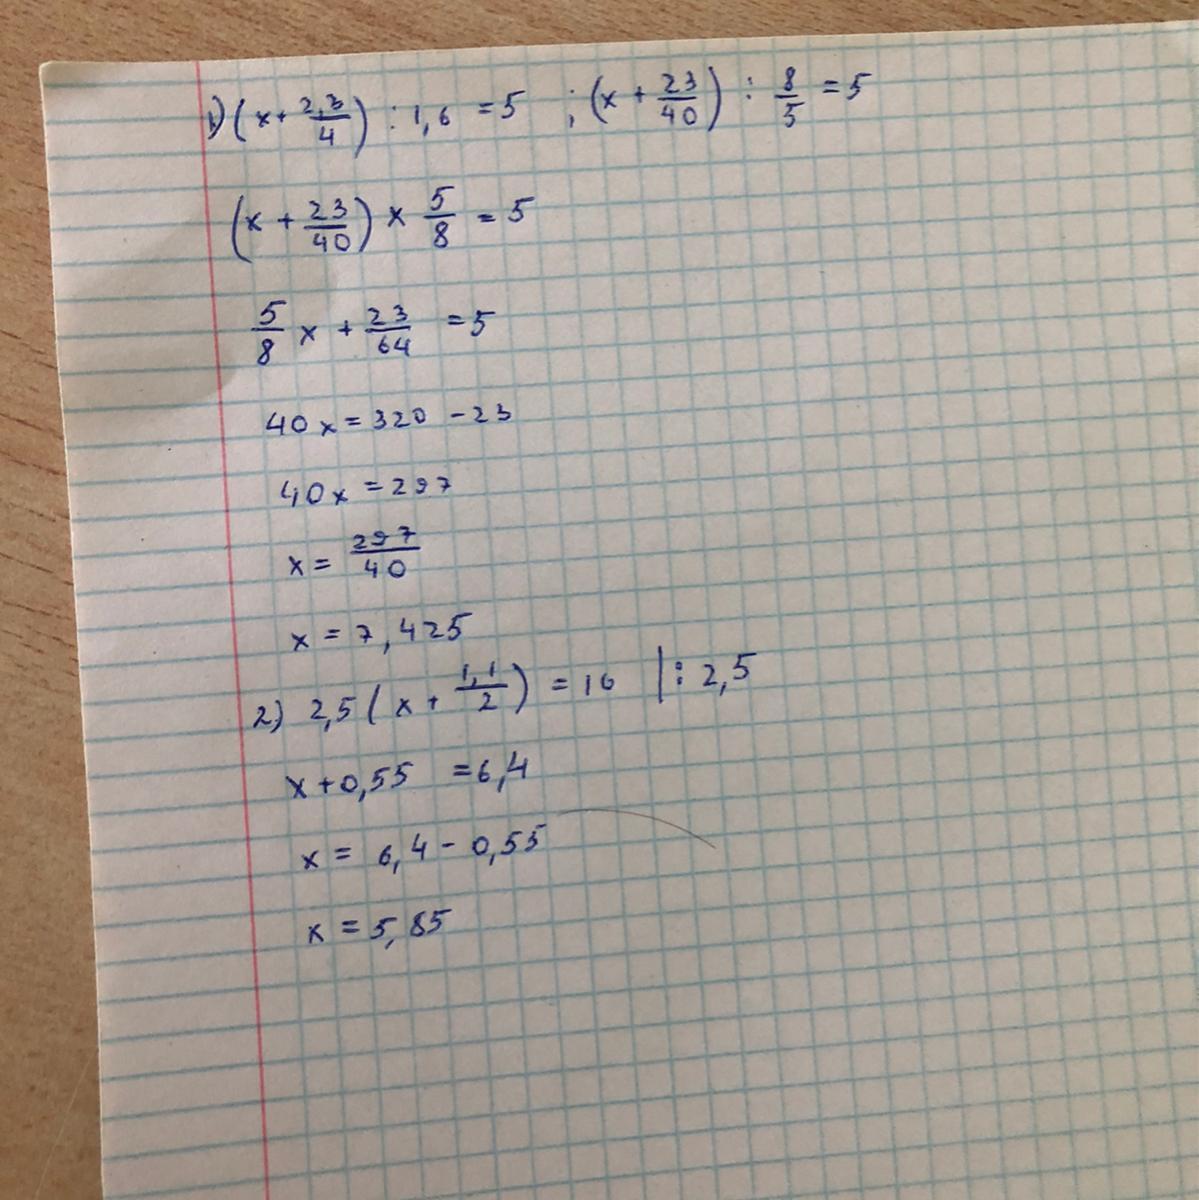 1) (x + 2,3/4) : 1,6 = 5 ; (x + 23/40) : 8/5 = 5
(x + 23/40) × 5/8 = 5
5/8 x + 23/64 = 5
40x = 320 - 23
40x = 297
x = 297/40
x = 7,425
2) 2,5 (x + 1,1/2) = 16 | : 2,5
x + 0,55 = 6,4
x = 6,4 - 0,55
x = 5,85